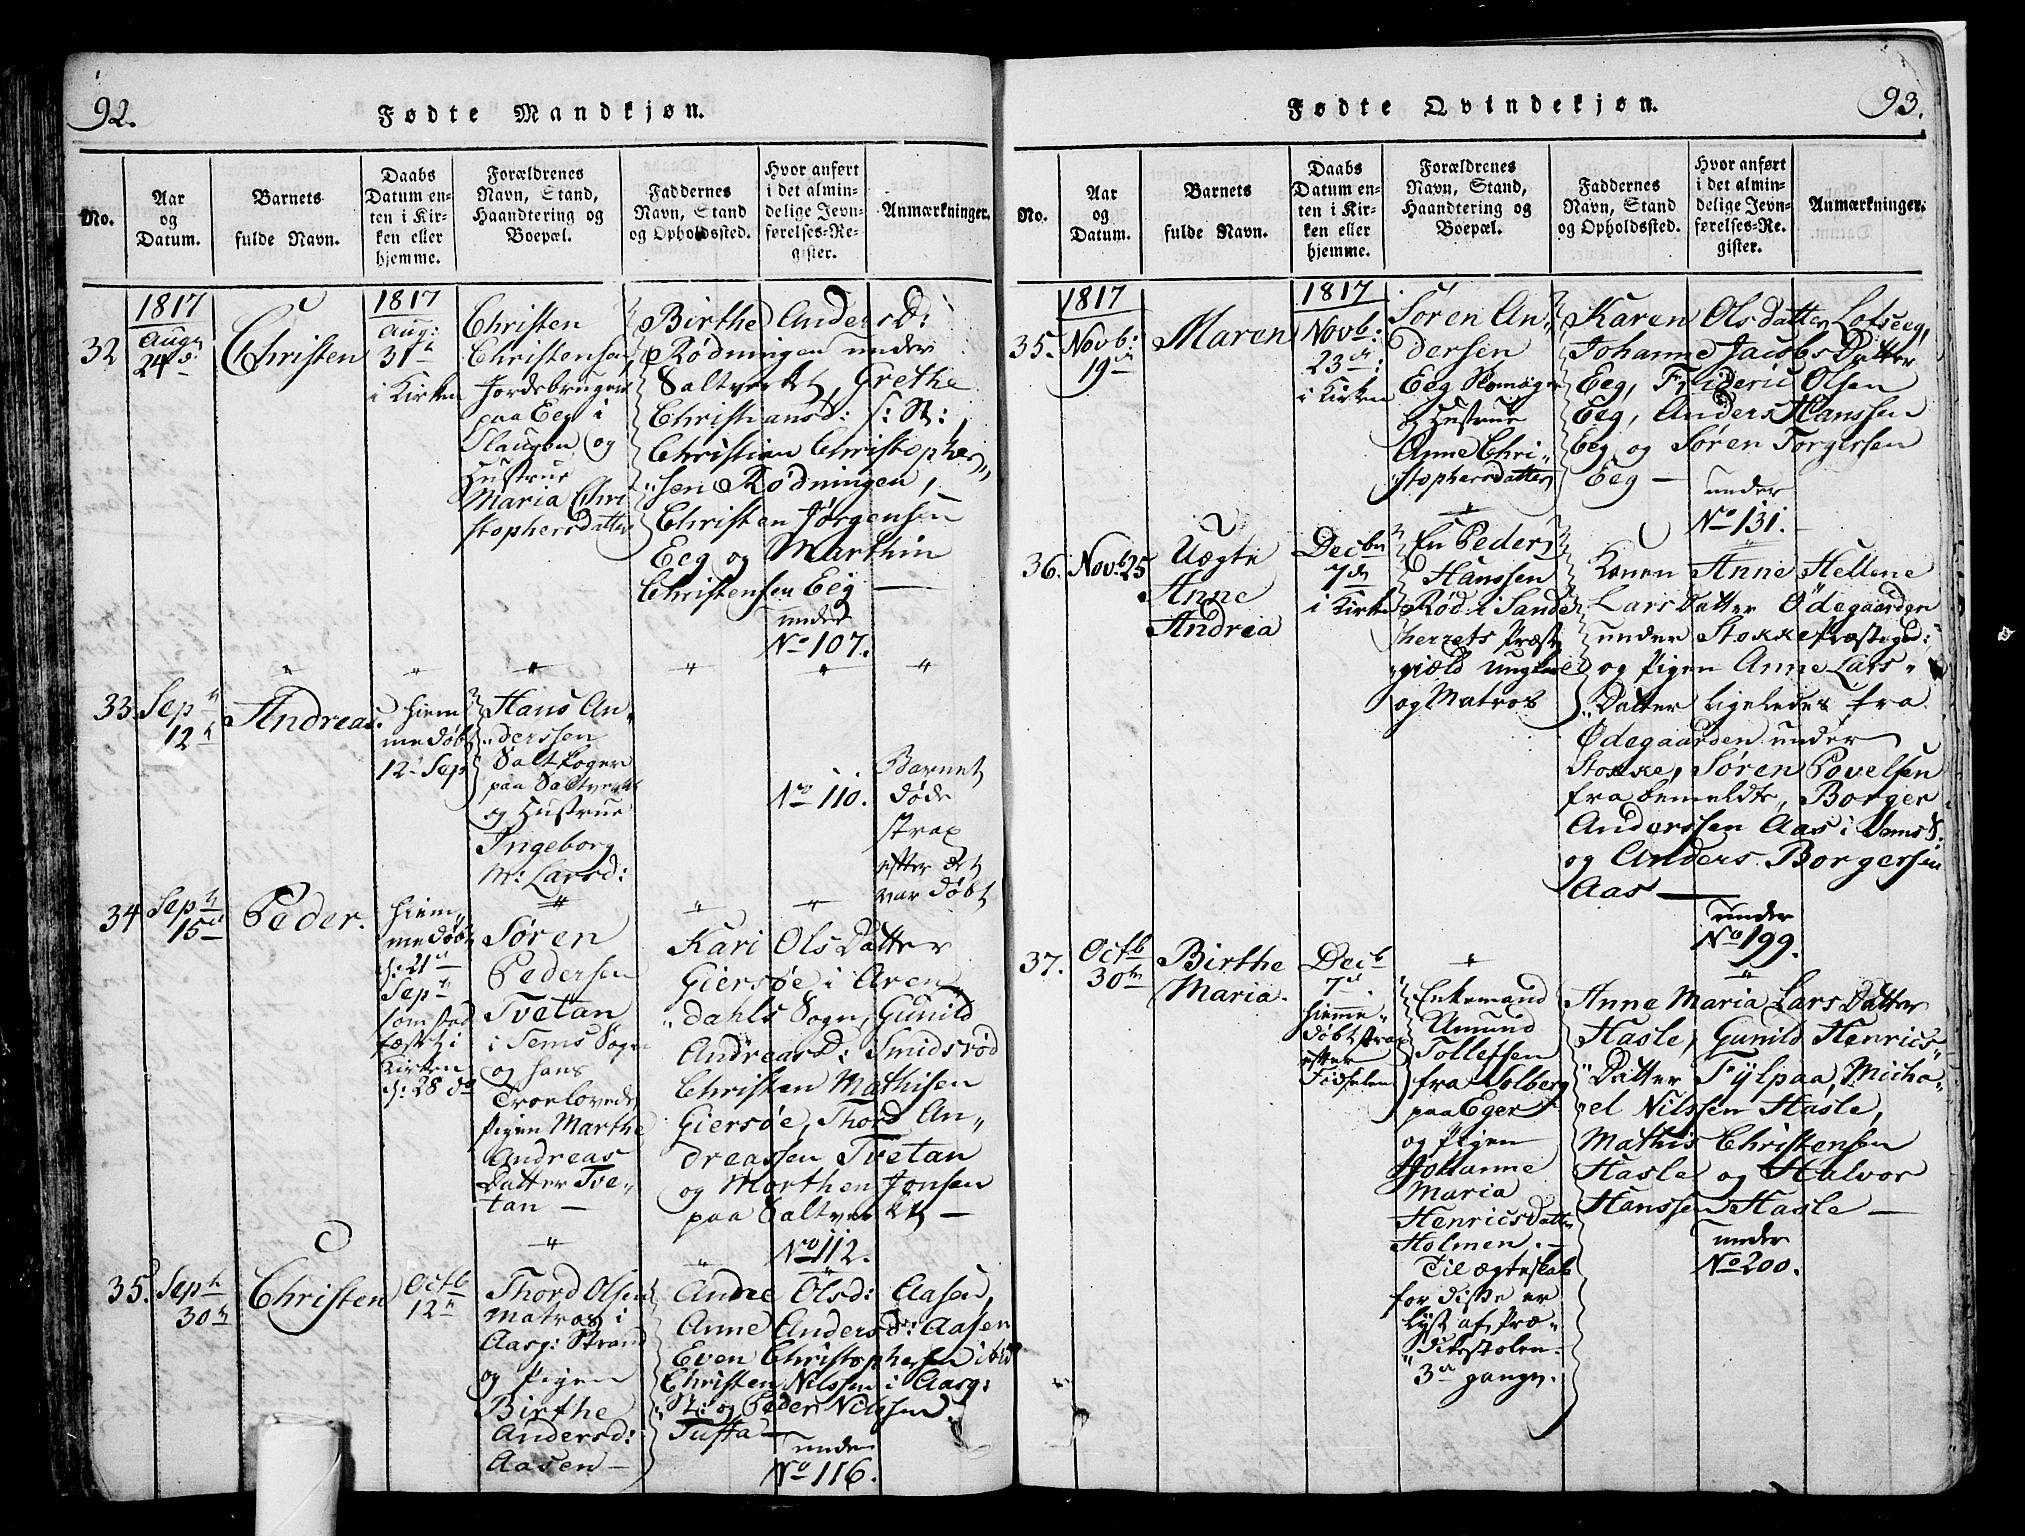 92.
Fødte Mandkjøn.
No.
Aar
og
Datum.
Barnets
fulde Navn.
Daabs
Datum en-
ten i Kir-
ken eller
hjemme.
Forældrenes
Navn, Stand,
Haandtering og
Boepæl.
Faddernes
Navn, Stand
og Opholdssted.
Hvor anført
i det almin-
delige Jevn-
førelses-Re-
gister.
Anmærkninger.
32
1817
Aug
24
Christen
1817
Aug:
31
i Kirken
Christen
Christensen
Jordebruger
paa Eeg i
Slaugen og
Hustrue
Maria Chri
stophersdatter
Birthe Anders D:
Rødningen under
Saltverket, Grethe
Christiansd: S: St:,
Christian Christopher„
„sen Rødningen,
Christen Jørgensen
Eeg og Marthin
Christensen Eeg —
under
No 107.
33
Sep
12
Andreas.
Hiem
me døbt
12 Sep
Hans An„
„derssen
Saltkoger
paa Saltverket
og Hustrue
Ingeborg
M: Larsd:
No 110.
Barnet
døde
strax
efter det
var døbt
34
Sep
15
Peder.
Hiem„
me døbt
d: 21
Sep
som stad
fæstet i
Kirken
d: 28 do
Søren
Pedersen
Tvetan
i Sems Sogn
og hans
Troelovede
Pigen Marthe
Andreas
Datter Tve„
tan —
Kari Ols Datter
Giersøe i Aren„
„dahls Sogn, Gunild
Andreas D: Smidsrød
Christen Mathisen
Giersøe, Thord An„
dreassen Tvetan
og Morthen Jonsen
paa Saltverket —
No 112.
35.
Sep
30
Christen
Octb
12
Thord Olsen
Matros i
Aasg: Strand
og Pigen
Birthe
Andersd:
Aasen —
Andre Olsd: Aasen,
Anne Andersd: Aasen
Even Christophersen ibid
Christen Nilssen i Aasg:
St: og Peder Nilssen
Tufta —
under
No 116.
93.
Fødte Qvindekjøn.
No.
Aar
og
Datum.
Barnets
fulde Navn.
Daabs
Datum en-
ten i Kir-
ken eller
hjemme.
Forældrenes
Navn, Stand,
Haandtering og
Boepæl.
Faddernes
Navn, Stand
og Opholdssted.
Hvor anført
i det almin-
delige Jevn-
førelses-Re-
gister.
Anmærkninger.
35.
1817
Novb:
19
Maren
1817
Novb:
23
i Kirken
Søren An„
dersen
Eeg Skomager
og Hustrue
Anne Chri„
stophersdatter
Karen Olsdatter Eeg,
Johanne Jacobs Datter
Eeg, Frideric Olsen
Eeg, Anders Hanssen
Eeg og Søren Torgersen
Eeg —
under
No 131.
36.
Novb 25
Uægte
Anne
Andrea
Decbr
7
i Kirken
En Peder
Hanssen
Rød i Sande
herrets Præste
gield Ungkarl
og Matros
Konen Anne Hellene
Lars Datter Ødegaarden
under Stokke Præstegd:
og Pigen Anne Lars„
„Datter ligeledes fra
Ødegaarden under
Stokke, Søren Povelsen
fra bemeldte, Borger
Anderssen Aas i Sems S:
og Anders Borgersen
Aas —
under
No 199.
37.
Octb
30
Birthe
Maria.
Decb
7
hieme„
døbt strax
efter
Fødselen
Enkemand
Amund
Tollefsen
fra Solberg
paa Eger
og Pigen
Johanne
Maria
Henricsdatter
Holmen. —
Til Ægteskab
for disse er
lyst af Præ„
„dikestolen
3 gange.
Anne Maria Lars Datter
Hasle, Gunild Henrics„
„Datter Fylpaa, Micha„
„el Nilssen Hasle,
Mathis Christensen
Hasle og Halvor
Hanssen Hasle —
under
No 200.